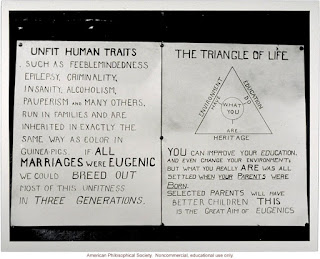 UNFIT HUMAN TRAITS
SUCH AS FEEBLEMINDEDNESS
EPILEPSY, CRIMINALITY,
INSANITY, ALCOHOLISM,
PAUPERISM AND MANY OTHERS,
RUN IN FAMILIES AND ARE
INHERITED IN EXACTLY THE
SAME WAY AS COLOR IN
GUINEA-PIGS. IF ALL
MARRIAGES WERE EUGENIC
WE COULD BREED OUT
MOST OF THIS UNFITNESS
IN THREE GENERATIONS.
THE TRIANGLE OF LIFE
ENVIRONMENT
EDUCATION
WHAT
YOU
ARE
HERITAGE
YOU CAN IMPROVE YOUR EDUCATION,
AND EVEN CHANGE YOUR ENVIRONMENT;
BUT WHAT YOU REALLY ARE WAS ALL
SETTLED WHEN YOUR PARENTS WERE
BORN.
SELECTED PARENTS WILL HAVE
BETTER CHILDREN THIS
IS THE GREAT AIM OF EUGENICS
American Philosophical Society. Noncommercial, educational use only.